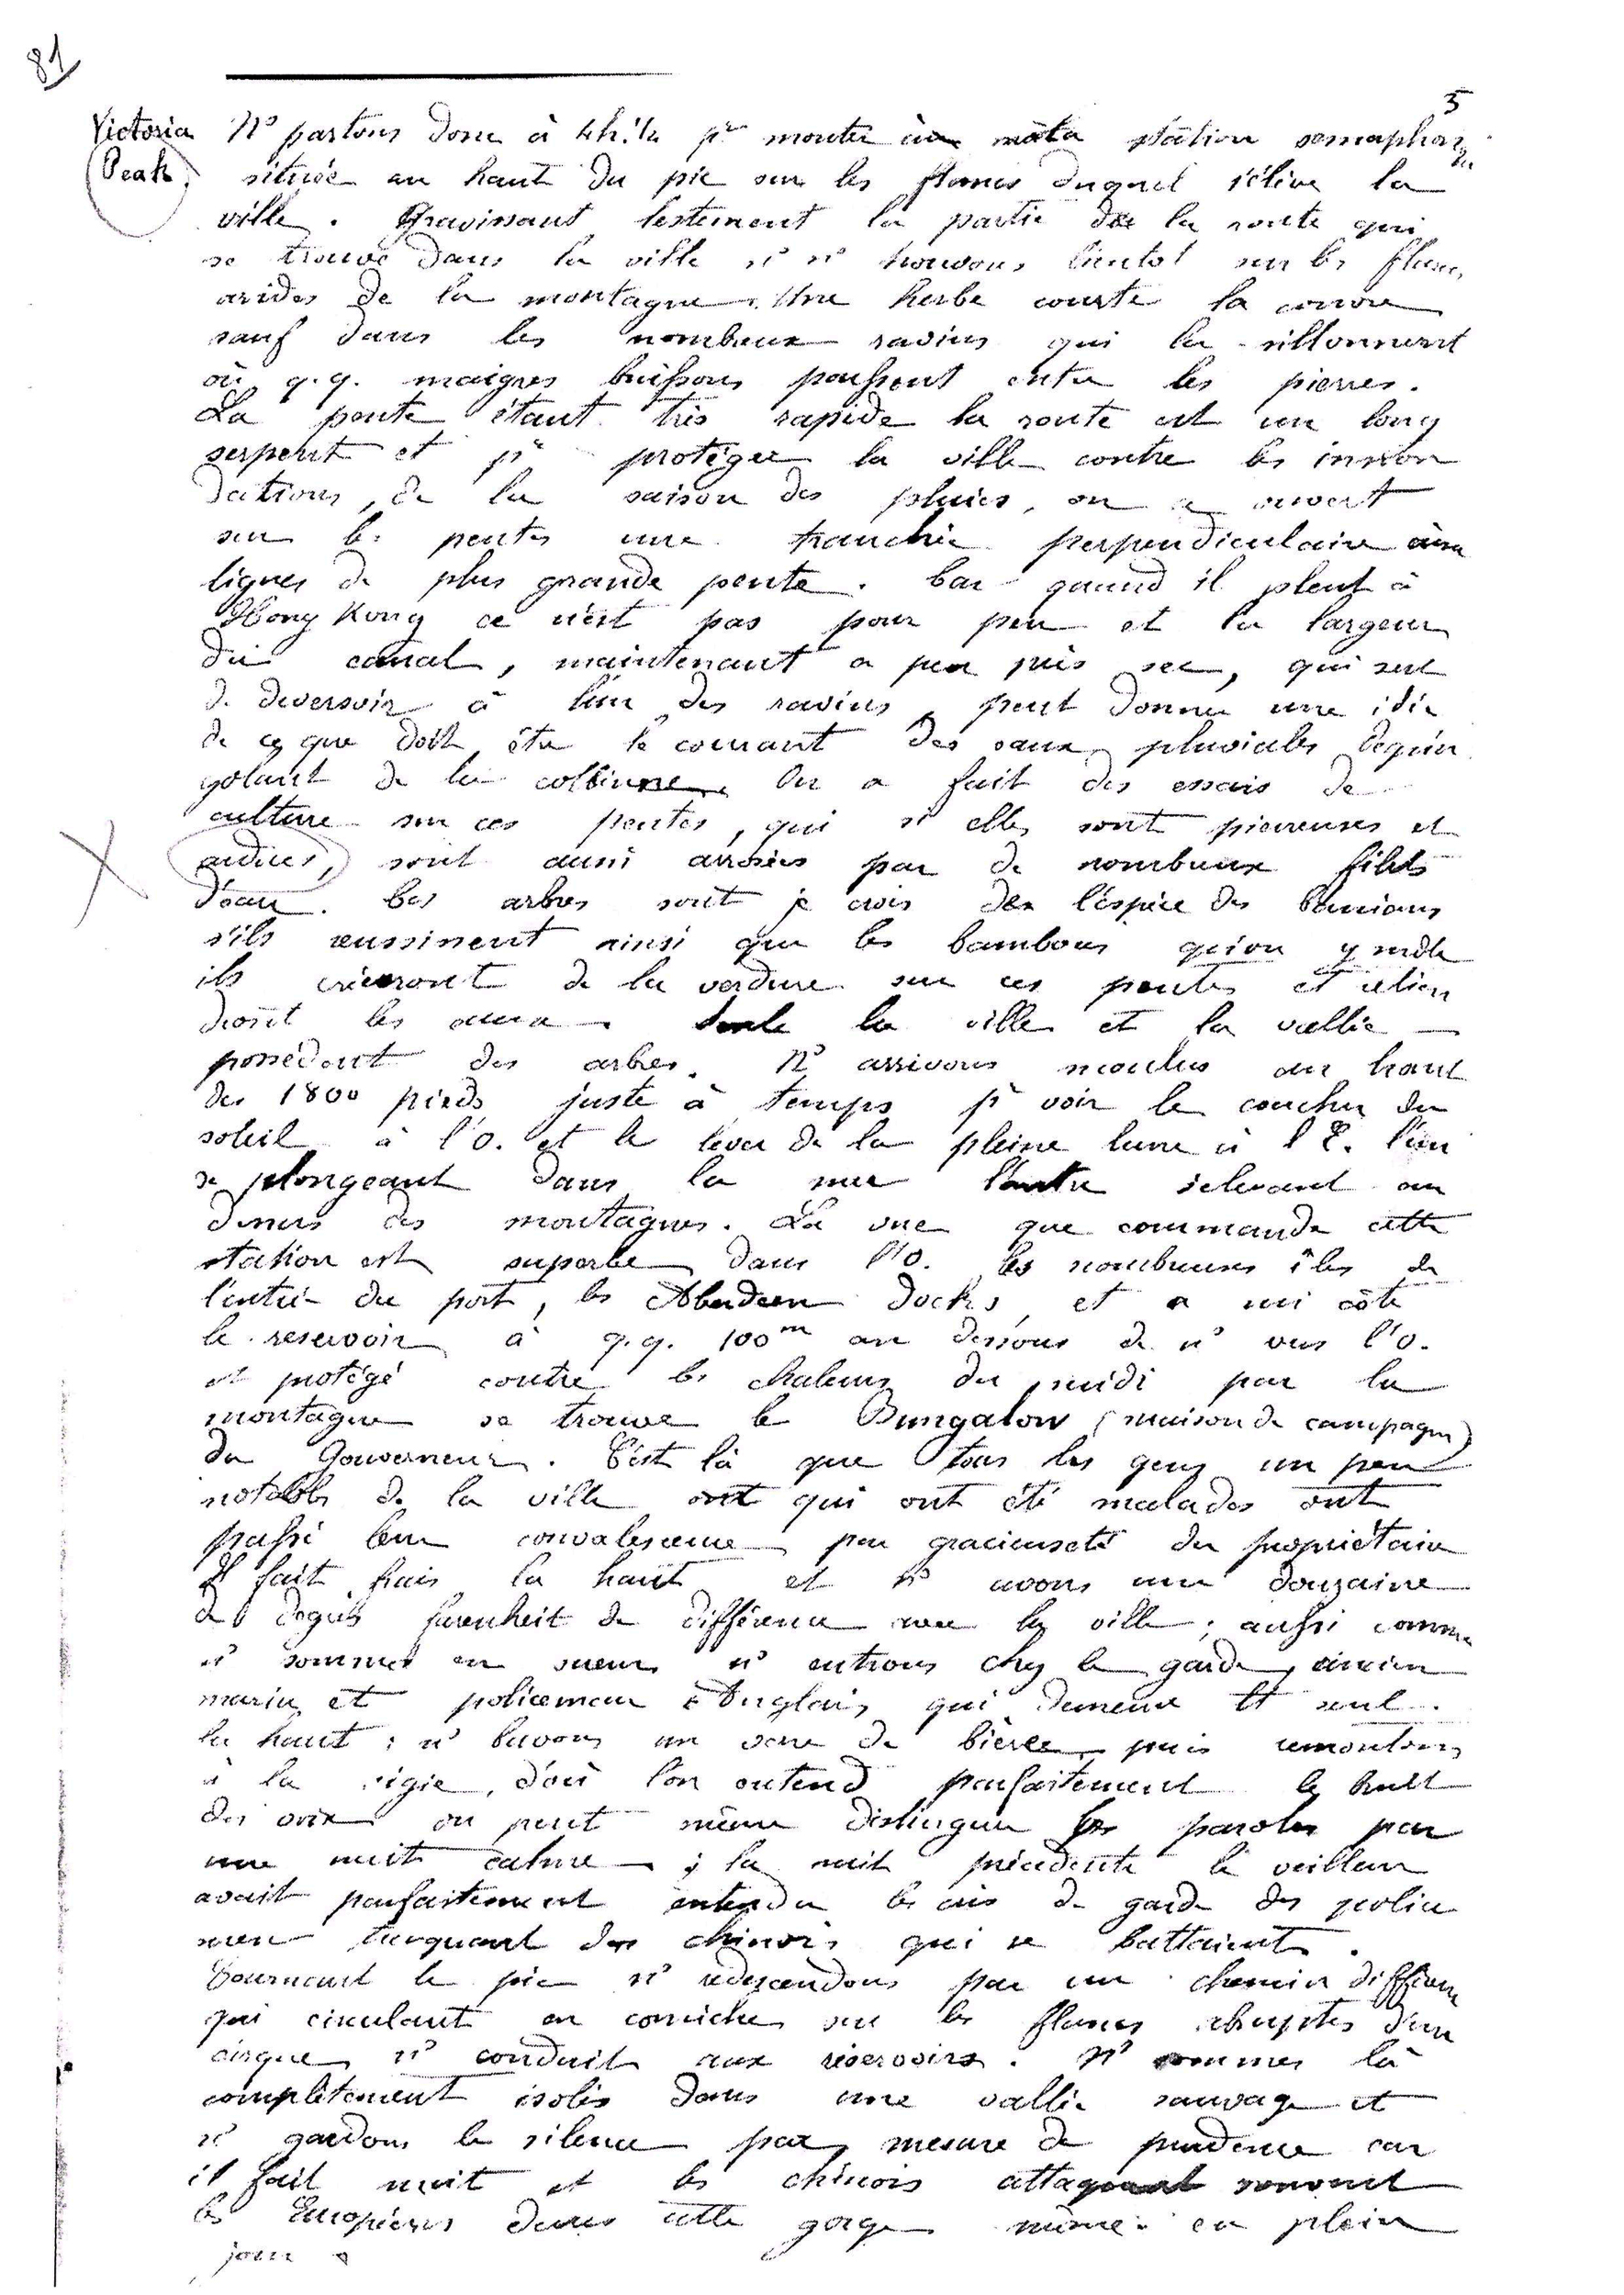 81
5
Victoria
Peak
Ns partons donc à 4h.1/2 pr monter au mâta station semaphori
située au haut du pic sur les flancs duquel s'élève la
ville. Gravissant lestement la partie de la route qui
se trouve dans la ville ns ns trouvons bientot sur les flancs
arides de la montagne. Une herbe courte la couvre
sauf dans les nombreux ravins qui la sillonnent
où q.q. maigres buissons poussent entre les pierres.
La pente étant très rapide la route est un long
serpent et pr protéger la ville contre les innon
dations de la saison des pluies, on a ouvert
sur les pentes une tranchée perpendiculaire aux
lignes de plus grande pente. Car quand il pleut à
Hong Kong ce n'est pas pour peu et la largeur
du canal, maintenant a peu près sec, qui sert
de deversoir à l'un des ravins peut donner une idée
de ce que doit être le courant des eaux pluviales dégrin
golant de la colline. On a fait des essais de
culture sur ces pentes, qui si elles sont pierreuses et
ardues, sont aussi arrosées par de nombreux filets
d'eau. Ces arbres sont je crois de l'espèce des banians
s'ils reussissent ainsi que les bambous qu'on y mêle
ils créeront de la verdure sur ces pentes et retien
dront les eaux. Seule la ville et la vallée
possèdent des arbres. Ns arrivons moulus au haut
des 1800 pieds juste à temps pr voir le coucher du
soleil à l'O. et le lever de la pleine lune à l'E. l'un
se plongeant dans la mer l'autre s'élevant au
dessus des montagnes. La vue que commande cette
station est superbe dans l'O. les nombreuses îles de
l'entrée du port, les Aberdeen docks, et a mi côte
le reservoir à q.q. 100m au dessous de ns vers l'O.
et protégé contre les chaleurs du midi par la
montagne se trouve le Bungalow (maison de campagne)
du Gouverneur. C'est là que tous les gens un peu
notables de la ville qui ont été malades ont
passé leur convalescence par gracieuseté du propriétaire
Il fait frais la haut et ns avons une douzaine
de degrés farenheit de différence avec la ville; aussi comme
ns sommes en sueur ns entrons chez le garde, ancien
marin et policeman Anglais, qui demeure tt seul
la haut; ns buvons un verre de bière puis remontons
à la vigie, d'où l'on entend parfaitement le bruit
des voix on peut même distinguer les paroles par
une nuit calme; la nuit précédente le veilleur
avait parfaitement entendu les cris de garde des police
men traquant des chinois qui se battaient.
Tournant le pic ns redescendons par un chemin différent
qui circulant en corniche sur les flancs abruptes d'un
cirque ns conduit aux réservoirs. Ns sommes là
complètement isolés dans une vallée sauvage et
ns gardons le silence par mesure de prudence car
il fait nuit et les chinois attaquent souvent
les Européens dans cette gorge même en plein
jour